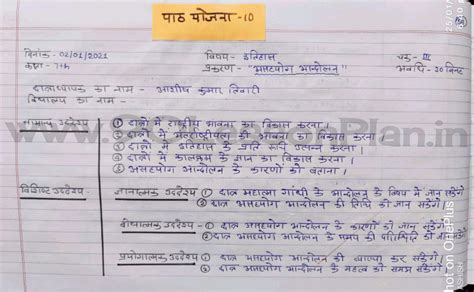 पाठ योजना - 10
दिनांक - 02/01/2021 विषय - इतिहास चक्र - III
कक्षा - 7th प्रकरण - "असहयोग आन्दोलन" अवधि - 30 मिनट
छात्राध्यापक का नाम - आशीष कुमार तिवारी
विद्यालय का नाम -
सामान्य उद्देश्य - ① छात्रों में राष्ट्रीय भावना का विकास करना।
② छात्रों में अन्तर्राष्ट्रीयता की भावना का विकास करना।
③ छात्रों में इतिहास के प्रति रूचि उत्पन्न करना।
④ छात्रों में कालक्रम के ज्ञान का विकास करना।
⑤ असहयोग आन्दोलन के कारणों को बताना।
विशिष्ट उद्देश्य - ज्ञानात्मक उद्देश्य - ① छात्र महात्मा गाँधी के आन्दोलन के विषय में जान सकेंगे
② छात्र असहयोग आन्दोलन की तिथि को जान सकेंगे।
बोधात्मक उद्देश्य - ① छात्र असहयोग आन्दोलन के कारणों को जान सकेंगे
② छात्र असहयोग आन्दोलन के समय की परिस्थिति को जान
प्रयोगात्मक उद्देश्य - ① छात्र असहयोग आन्दोलन की व्याख्या कर सकेंगे।
② छात्र असहयोग आन्दोलन के महत्व को समझ सकेंगे।
Shot on OnePlus